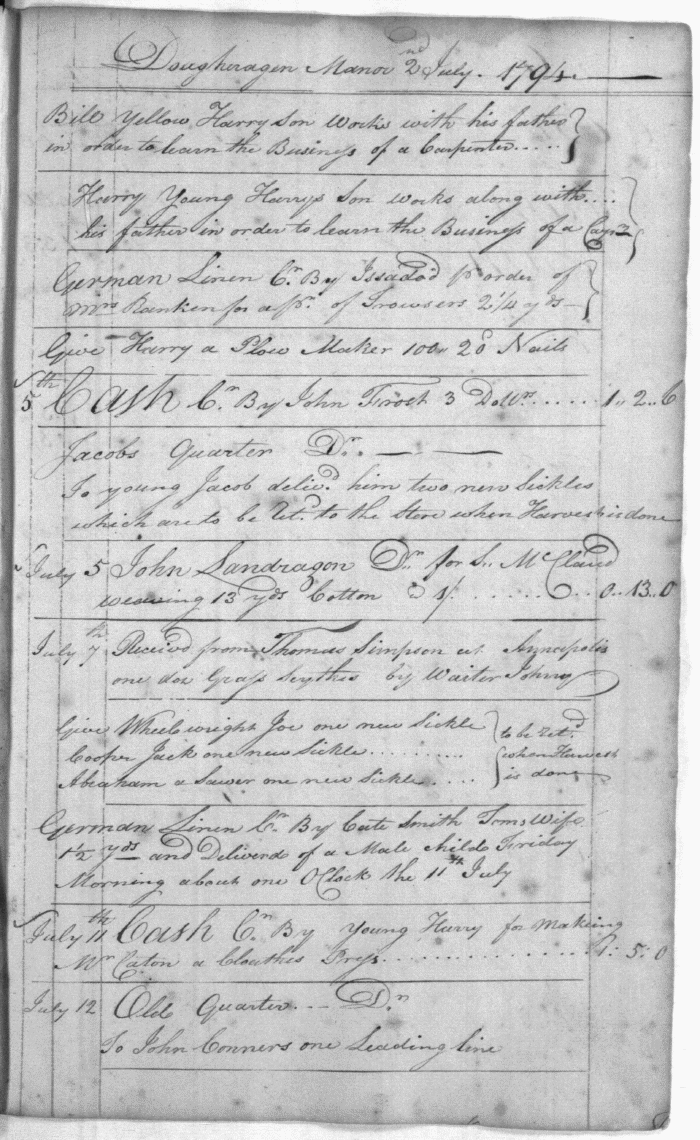 Dougheragen Manor 2nd July. 1794.
Bill Yellow Harry Son Works with his father
in order to learn the Business of a Carpenter.....
Harry Young Harrys Son works along with....
his father in order to learn the Business of a Carpr
German Linen Cr. By Issac Do'd pr order of
Mrs Ranken for a pr. of Trowsers 2 1/4 yds
Give Harry a Plow Maker 100 20d Nails
5th Cash Cr. By John Frost 3 Dollrs ...... 1.. 2.. 6
Jacobs Quarter Dr.
To young Jacob delivd. him two new Sickles
which are to be Retd. to the Store when Harvest is done
July 5 John Landragon Dr. for S. McClaud
weaving 13 yds Cotton @ 1/. ........ 0.. 13.. 0
July 7th Receivd from Thomas Simpson at Annapolis
one doz Grass Scythes by Waiter Johny
Give Wheelwright Joe one new Sickle
Cooper Jack one new Sickle..........
Abraham a Sawer one new Sickle.....
to be Retd.
when Harvest
is done
German Linen Cr. By Cate Smith Toms Wife
1 1/2 yds and Deliverd of a Male child Friday
Morning about one OClock the 11th July
July 11th Cash Cr. By Young Harry for Making
Mr Caton a Cloathes Prys............... 1: 5: 0
July 12 Old Quarter... Dr.
To John Conners one Leading line